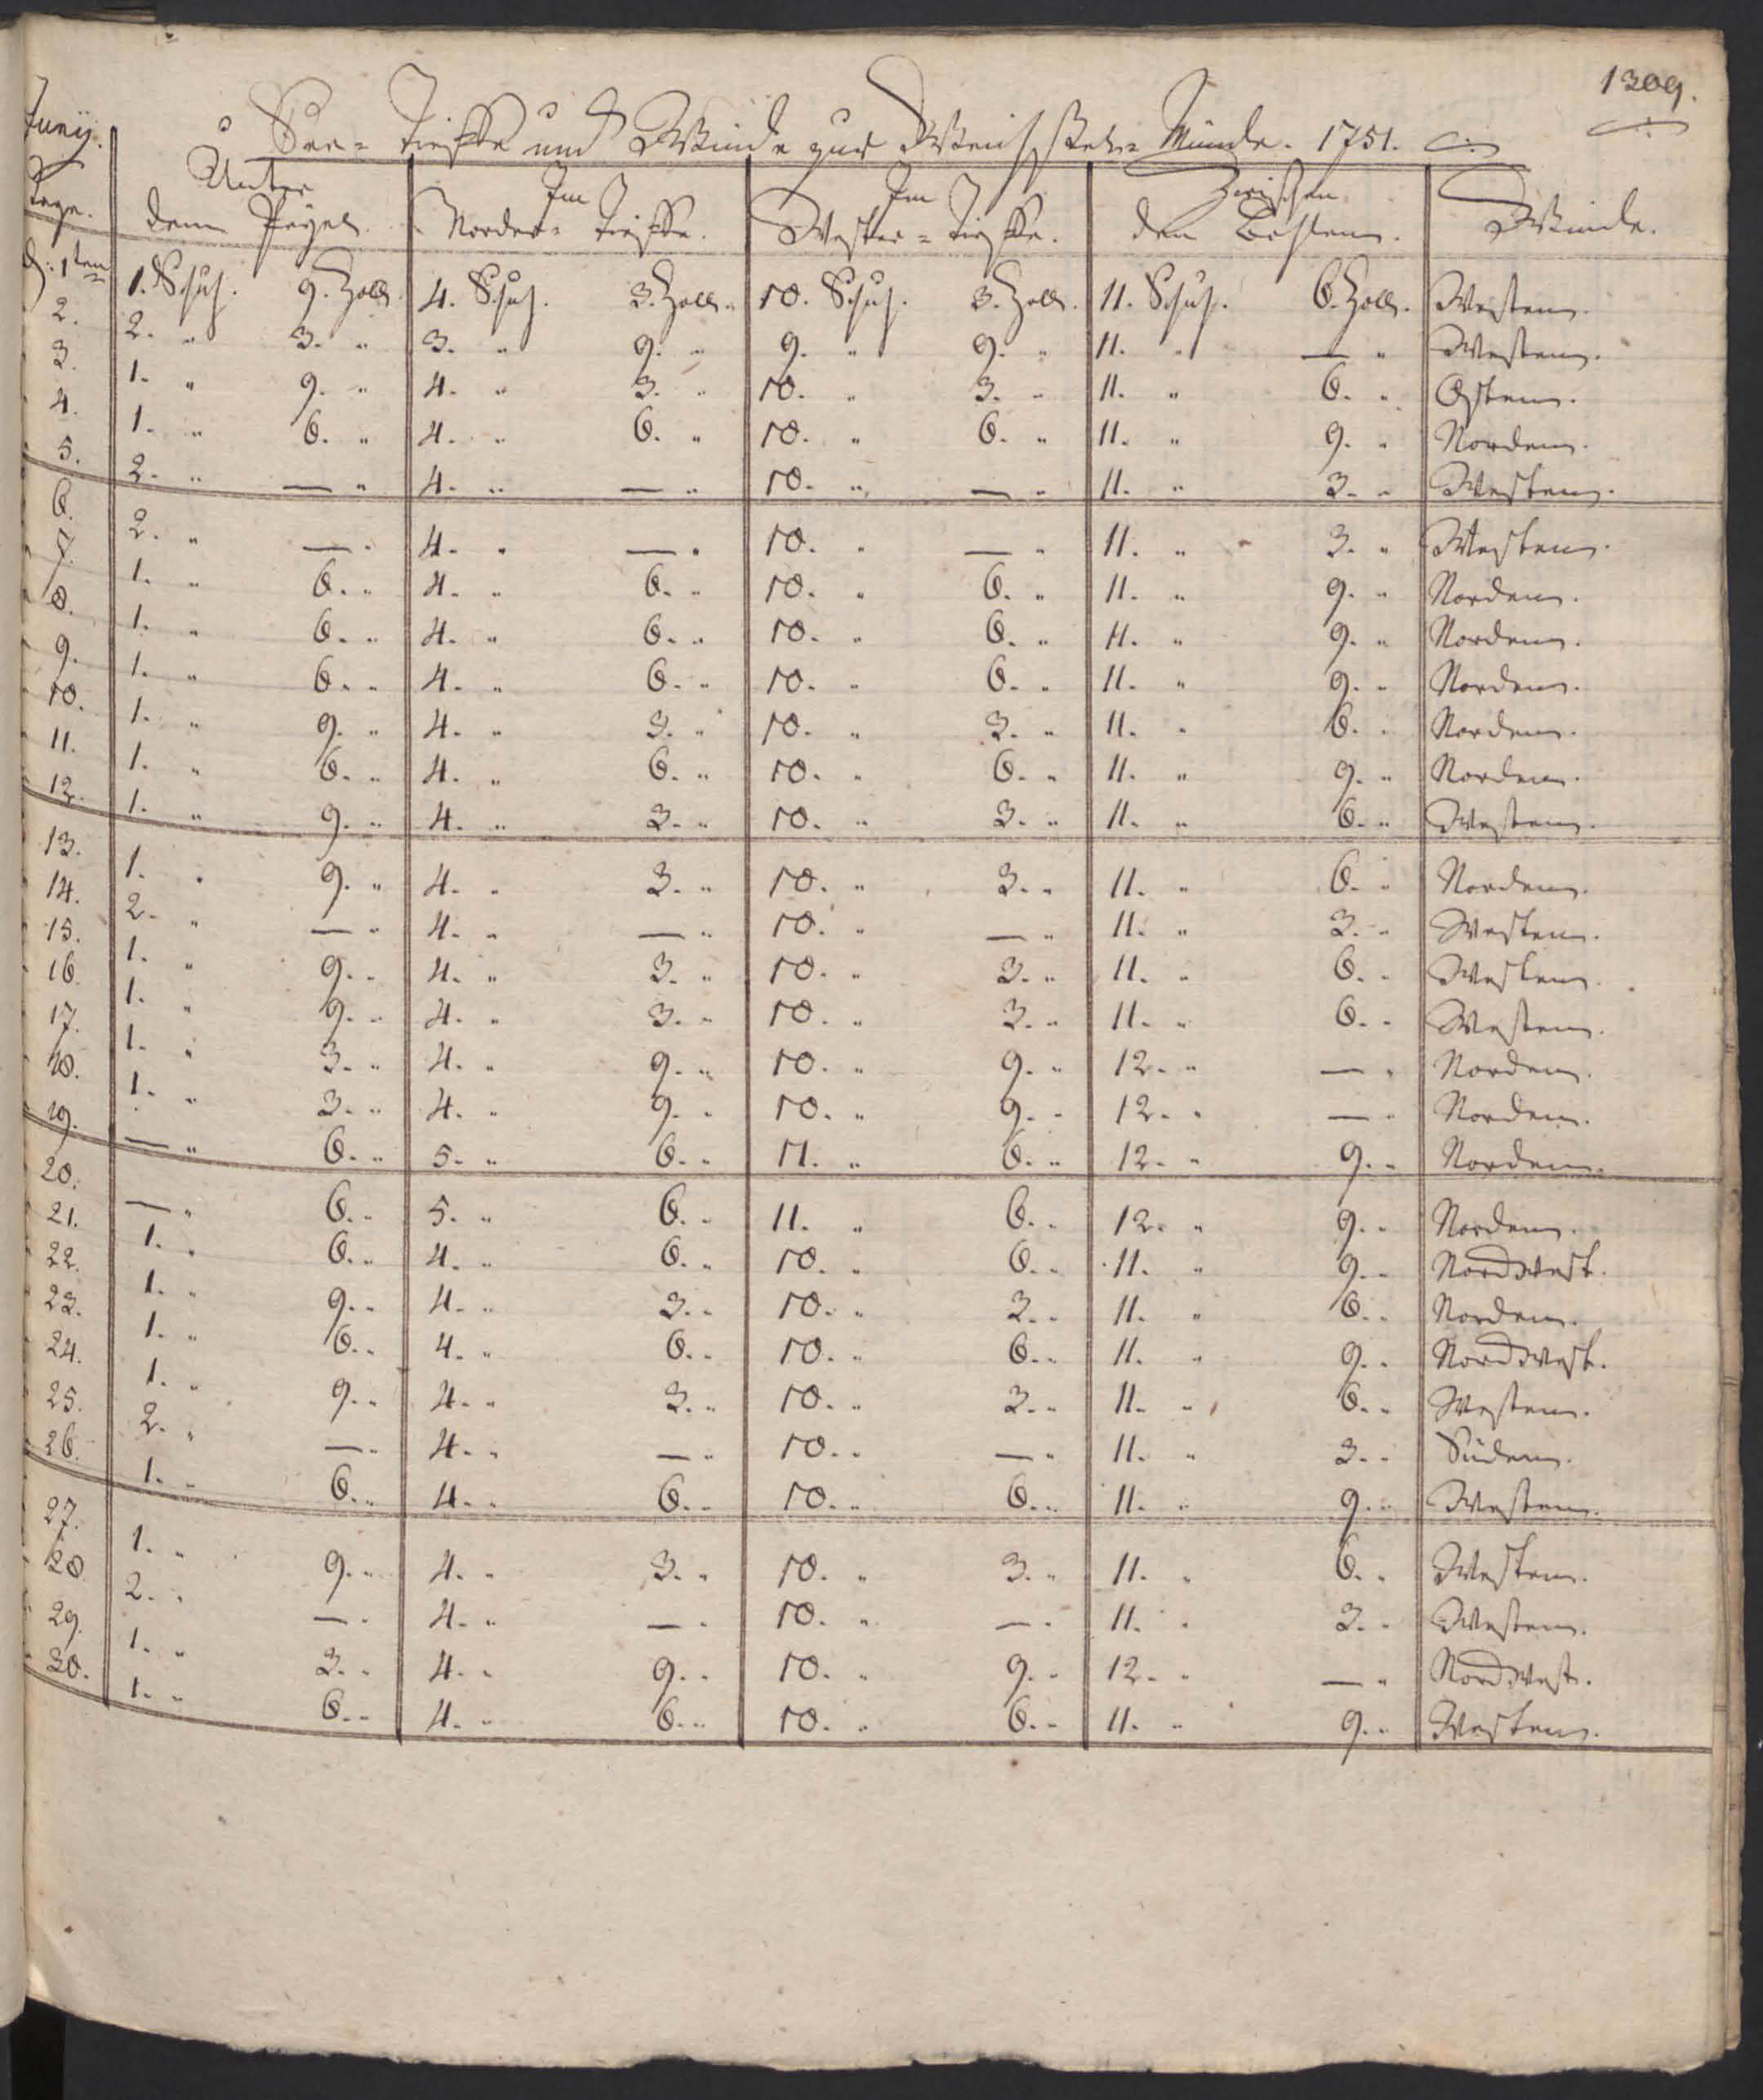 1309.
Juny. See- Tieffe und Winde zur Weichselmünde. 1751.
Tage. Unter dem Peyel. Im Norder- Tieffe. Im Wester- Tieffe. Zwischen den Winde.
d. 1ten 1. Schuh. 9. Zoll. 4. Schuh. 3. Zoll. 10. Schuh. 3. Zoll. 11. Schuh. 6. Zoll. Westen.
2. 2. " 3. " 3. " 9. " 9. " 9. " 11. " — " Westen.
3. 1. " 9. " 4. " 3. " 10. " 3. " 11. " 6. " Osten.
4. 1. " 6. " 4. " 6. " 10. " 6. " 11. " 9. " Norden.
5. 2. " — " 4. " — " 10. " — " 11. " 3. " Westen.
6. 2. " — " 4. " — " 10. " — " 11. " 3. " Westen.
7. 1. " 6. " 4. " 6. " 10. " 6. " 11. " 9. " Norden.
8. 1. " 6. " 4. " 6. " 10. " 6. " 11. " 9. " Norden.
9. 1. " 6. " 4. " 6. " 10. " 6. " 11. " 9. " Norden.
10. 1. " 9. " 4. " 3. " 10. " 3. " 11. " 6. " Norden.
11. 1. " 6. " 4. " 6. " 10. " 6. " 11. " 9. " Norden.
12. 1. " 9. " 4. " 3. " 10. " 3. " 11. " 6. " Westen.
13. 1. " 9. " 4. " 3. " 10. " 3. " 11. " 6. " Norden.
14. 2. " — " 4. " — " 10. " — " 11. " 3. " Westen.
15. 1. " 9. " 4. " 3. " 10. " 3. " 11. " 6. " Westen.
16. 1. " 9. " 4. " 3. " 10. " 3. " 11. " 6. " Westen.
17. 1. " 3. " 4. " 9. " 10. " 9. " 12. " — " Norden.
18. 1. " 3. " 4. " 9. " 10. " 9. " 12. " — " Norden.
19. — " 6. " 5. " 6. " 11. " 6. " 12. " 9. " Norden.
20. — " 6. " 5. " 6. " 11. " 6. " 12. " 9. " Norden.
21. 1. " 6. " 4. " 6. " 10. " 6. " 11. " 9. " Nordwest.
22. 1. " 9. " 4. " 3. " 10. " 3. " 11. " 6. " Norden.
23. 1. " 6. " 4. " 6. " 10. " 6. " 11. " 9. " Nordwest.
24. 1. " 9. " 4. " 3. " 10. " 3. " 11. " 6. " Westen.
25. 2. " — " 4. " — " 10. " — " 11. " 3. " Süden.
26. 1. " 6. " 4. " 6. " 10. " 6. " 11. " 9. " Westen.
27. 1. " 9. " 4. " 3. " 10. " 3. " 11. " 6. " Westen.
28. 2. " — " 4. " — " 10. " — " 11. " 3. " Westen.
29. 1. " 3. " 4. " 9. " 10. " 9. " 12. " — " Nordwest.
30. 1. " 6. " 4. " 6. " 10. " 6. " 11. " 9. " Westen.